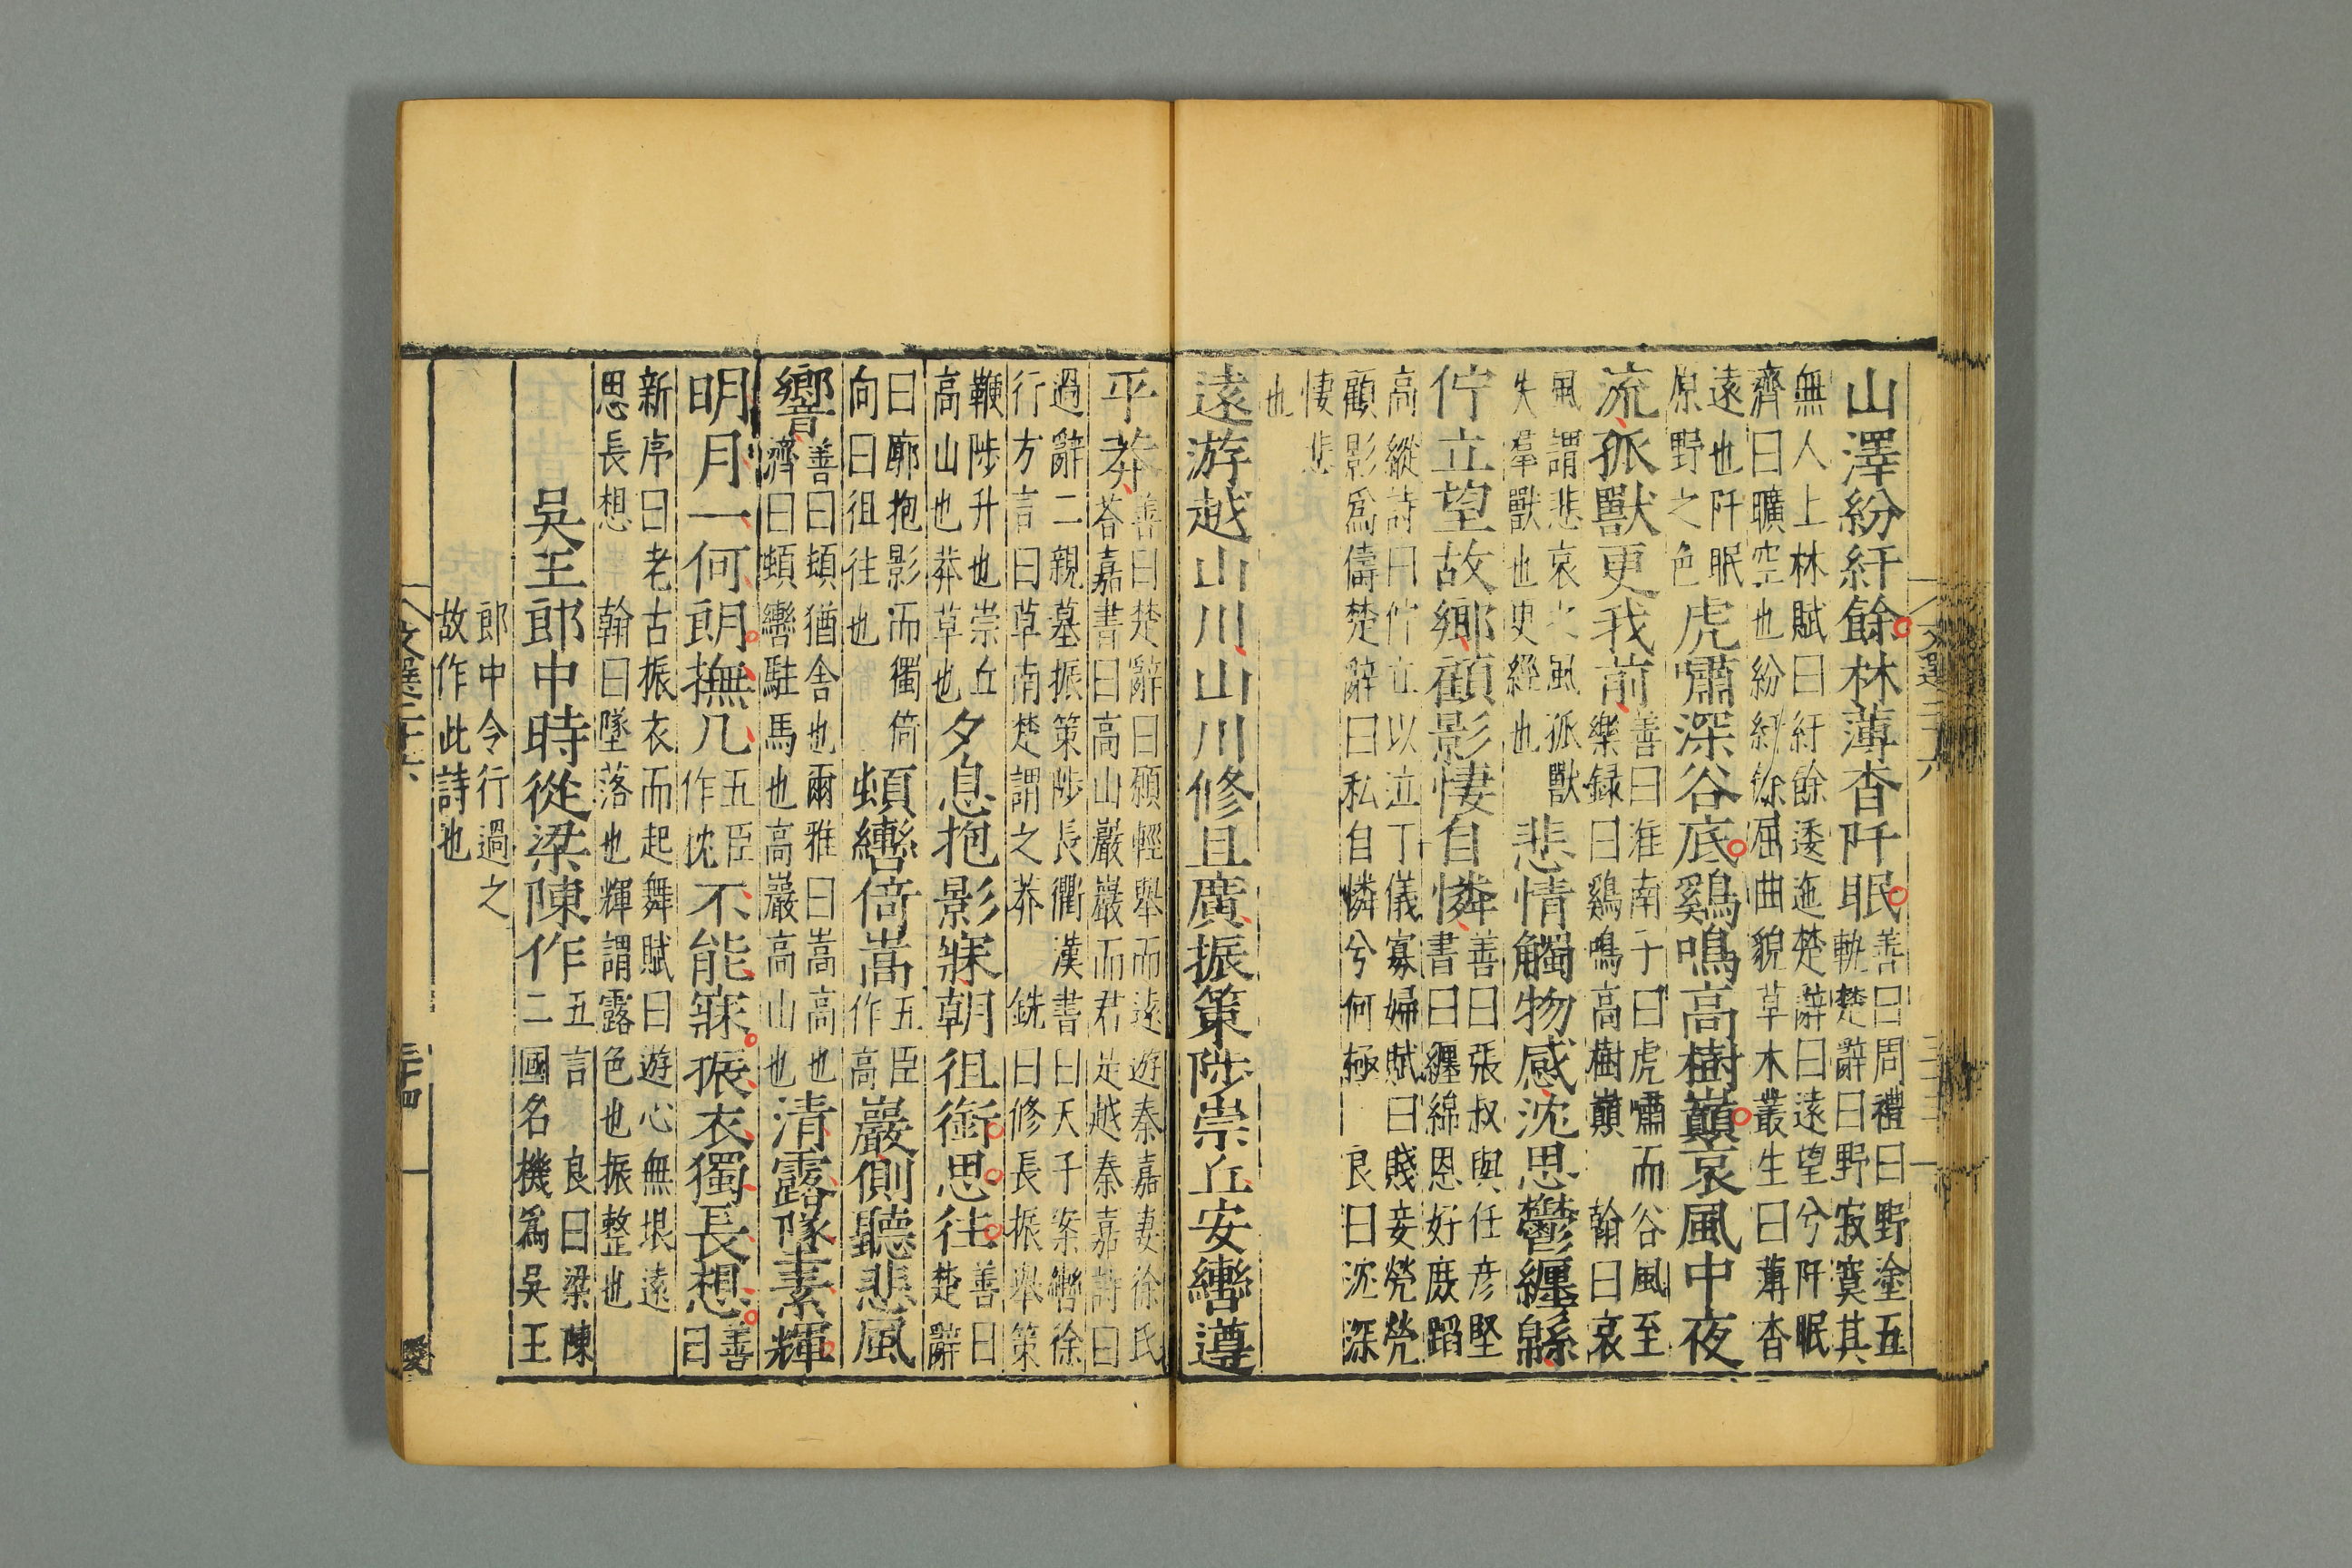 山澤紛紆餘林薄杳阡眠善曰周禮曰野塗五
軌楚辭曰野寂寞其
無人上林賦曰紆餘逶迤楚辭曰遠望兮阡眠
濟曰曠空也紛紆餘屈曲貌草木叢生曰薄杳
遠也阡眠
原野之色
虎嘯深谷底鷄鳴高樹巔哀風中夜
流孤獸更我前善曰淮南子曰虎嘯而谷風至
樂録曰鷄鳴高樹巔 翰曰哀
風謂悲哀之風孤獸
失羣獸也更經也
悲情觸物感沈思鬱纏緜
佇立望故鄉顧影悽自憐善曰張叔與任彦堅
書曰纏綿恩好庶蹈
高縱詩曰佇立以泣丁儀寡婦賦曰賤妾煢煢
顧影爲儔楚辭曰私自憐兮何極 良曰沈深
悽悲
也
遠游越山川山川修且廣振策陟崇丘安轡遵
平莽善曰楚辭曰願輕舉而遠遊秦嘉妻徐氏
荅嘉書曰高山巖巖而君是越秦嘉詩曰
過辭二親墓振策陟長衢漢書曰天子案轡徐
行方言曰草南楚謂之莽 銑曰修長振舉策
鞭陟升也崇丘
高山也莽草也
夕息抱影寐朝徂銜思往善曰
楚辭
曰廓抱影而獨倚
向曰徂往也
頓轡倚嵩五臣
作高巖側聽悲風
響善曰頓猶舍也爾雅曰嵩高也
濟曰頓轡駐馬也高巖高山也
清露墜素輝
明月一何朗撫几五臣
作枕不能寐振衣獨長想善
曰
新序曰老古振衣而起舞賦曰遊心無垠遠
思長想 翰曰墜落也輝謂露色也振整也
吳王郎中時從梁陳作五言 良曰梁陳
二國名機爲吳王
郎中令行過之
故作此詩也
文選二十六
三十四